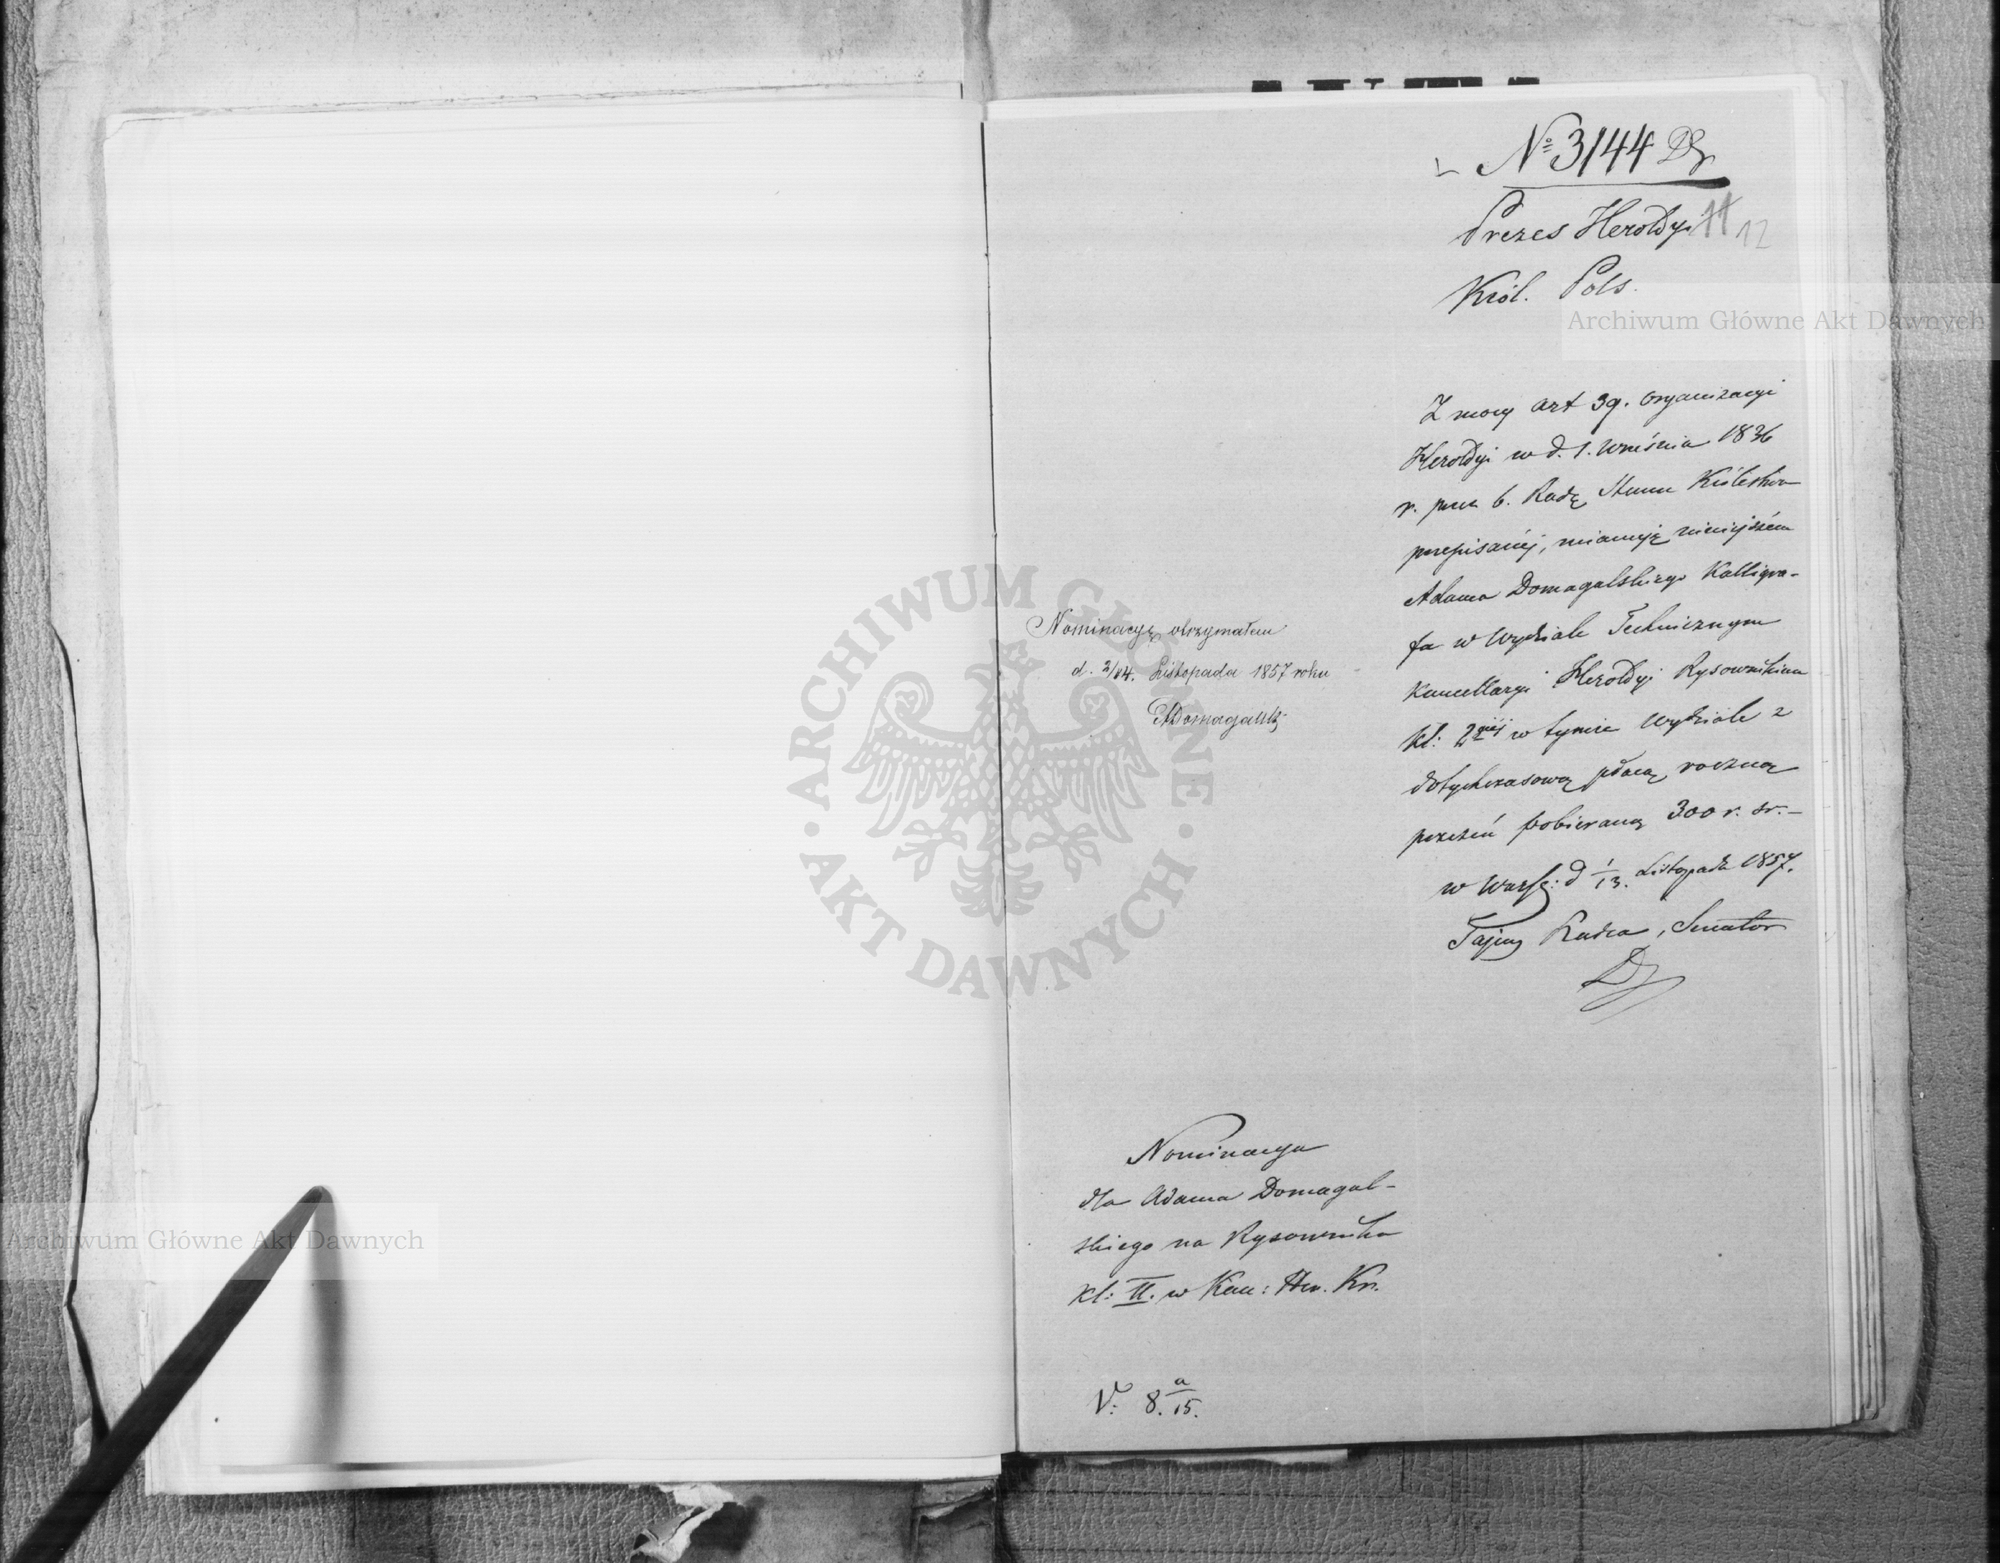 № 3144
Prezes Heroldyi
11 12
Król. Pols.
Z mocy art 39. organizacyi
Heroldyi w d. 1. Września 1836
r. przez b. Radę Stanu Królestwa
przepisanéj, mianuję niniejszém
Adama Domagalskiego Kalligra-
fa w Wydziale Technicznym
Kancellaryi Heroldyi Rysownikiem
Kl: 2giéj w tymże Wydziale z
dotychczasową płacą roczną
przezeń pobieraną 300 r. sr.—
w Warsz: d 1/13. Listopada 1857.
Tajny Radca, Senator
Nominacyę otrzymałem
d. 2/14. Listopada 1857 roku
ADomagalski
Nominacya
dla Adama Domagal-
skiego na Rysownika
kl: II. w Kan: Her. Kr.
V: 8. a/15.
Archiwum Główne Akt Dawnych
ARCHIWUM GŁÓWNE · AKT DAWNYCH ·
Archiwum Główne Akt Dawnych